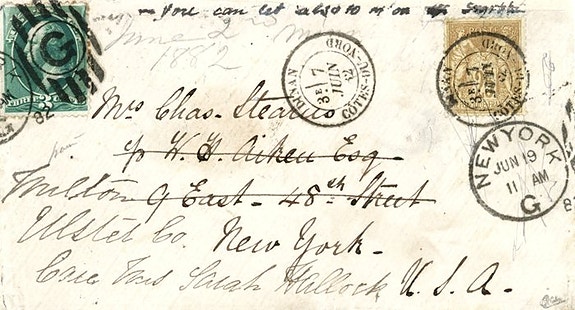 you can let
June 2nd
1882
DINAN
3E 7
JUIN
82
COTES-DU-NORD
DINAN
3E 7
JUIN
82
COTES-DU-NORD
G
82
NEW YORK
JUN 19
11 AM
G
82
Mrs Chas. Stearns
c/o W. H. Aiken Esq.
Milton 9 East 48th Street
Ulster Co. New York
Care Mrs Sarah Hallock U.S.A.